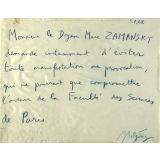 Monsieur le Doyen Marc ZAMANSKY
demande instamment d'éviter
toute manifestation ou provocation,
qui ne pourrait que compromettre
l'avenir de la Faculté des Sciences
de Paris